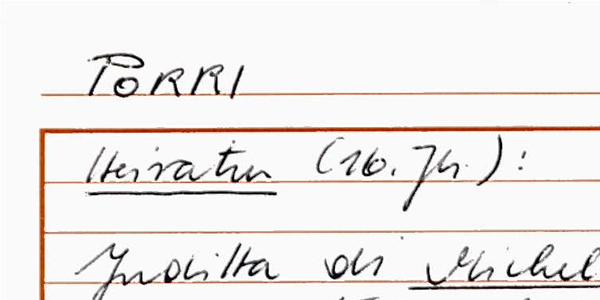 PORRI
Heiraten (16. Jh.):
Juditta di Michel